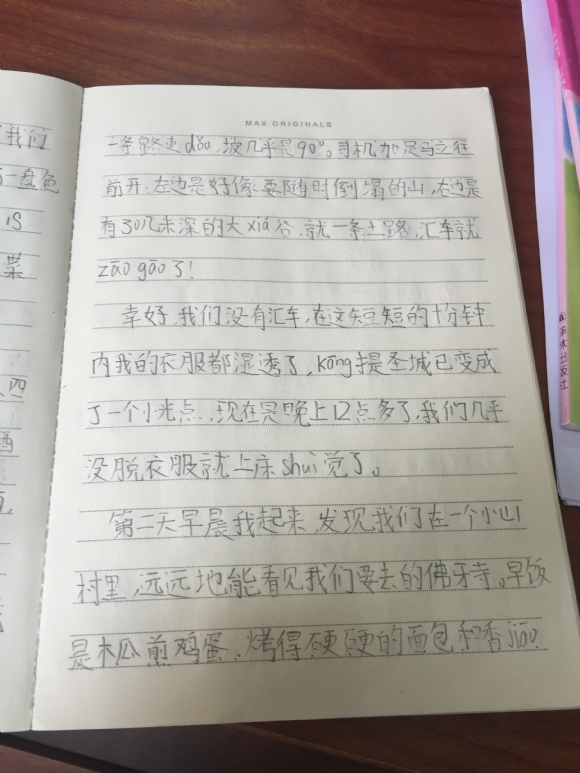 MAX ORIGINALS
一条路更dǒu,坡几乎是90°。司机加足马立往
前开:左边是好像要随时倒塌的山,右边是
有30几米深的大xiá谷,就一条土路,汇车就
zāo gāo了!
幸好,我们没有汇车,在这短短的十分钟
内我的衣服都湿透了,kāng提圣城已变成
了一个小光点,现在是晚上12点多了,我们几乎
没脱衣服就上床shuì觉了。
第二天早晨我起来,发现我们在一个小山
村里,远远地能看见我们要去的佛牙寺。早饭
是木瓜煎鸡蛋,烤得硬硬的面包和香jiāo
我们
一盘色
is
菜
四
酒